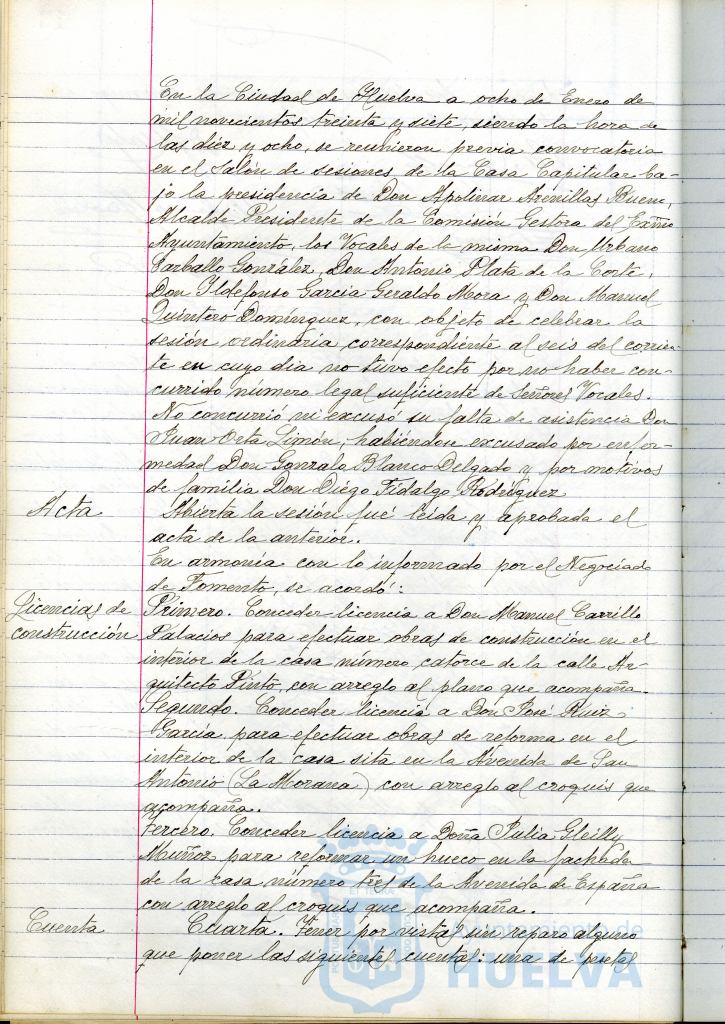 En la Ciudad de Huelva a ocho de Enero de
mil novecientos treinta y siete, siendo la hora de
las diez y ocho, se reunieron previa convocatoria
en el Salón de sesiones de la Casa Capitular ba-
jo la presidencia de Don Apolinar Arenillas Bueno,
Alcalde Presidente de la Comisión Gestora del Exmo
Ayuntamiento, los Vocales de la misma Don Urbano
Carballo González, Don Antonio Plata de la Corte,
Don Yldefonso Garcia Geraldo Mora y Don Manuel
Quintero Domínguez, con objeto de celebrar la
sesión ordinaria correspondiente al seis del corrien-
te en cuyo dia no tuvo efecto por no haber con-
currido número legal suficiente de Señores Vocales.
No concurrió ni excusó su falta de asistencia Don
Juan Orta Limón, habiéndon excusado por enfer-
medad Don Gonzalo Blanco Delgado y por motivos
de familia Don Diego Fidalgo Rodríguez
Acta
Abierta la sesión fué leída y aprobada el
acta de la anterior.
En armonía con lo informado por el Negociado
de Fomento, se acordó:
Licencias de
construcción
Primero. Conceder licencia a Don Manuel Carrillo
Palacios para efectuar obras de construcción en el
interior de la casa número catorce de la calle Ar-
quitecto Pinto, con arreglo al plano que acompaña.
Segundo. Conceder licencia a Don José Ruiz
García para efectuar obras de reforma en el
interior de la casa sita en la Avenida de San
Antonio (La Morana) con arreglo al croquis que
acompaña.
Tercero. Conceder licencia a Doña Julia Gleilly
Muñoz para reformar un hueco en la fachada
de la casa número tres de la Avenida de España
con arreglo al croquis que acompaña.
Cuenta
Cuarta. Tener por vistas sin reparo alguno
que poner las siguientes cuentas: una de pesetas
Ayuntamiento de
HUELVA